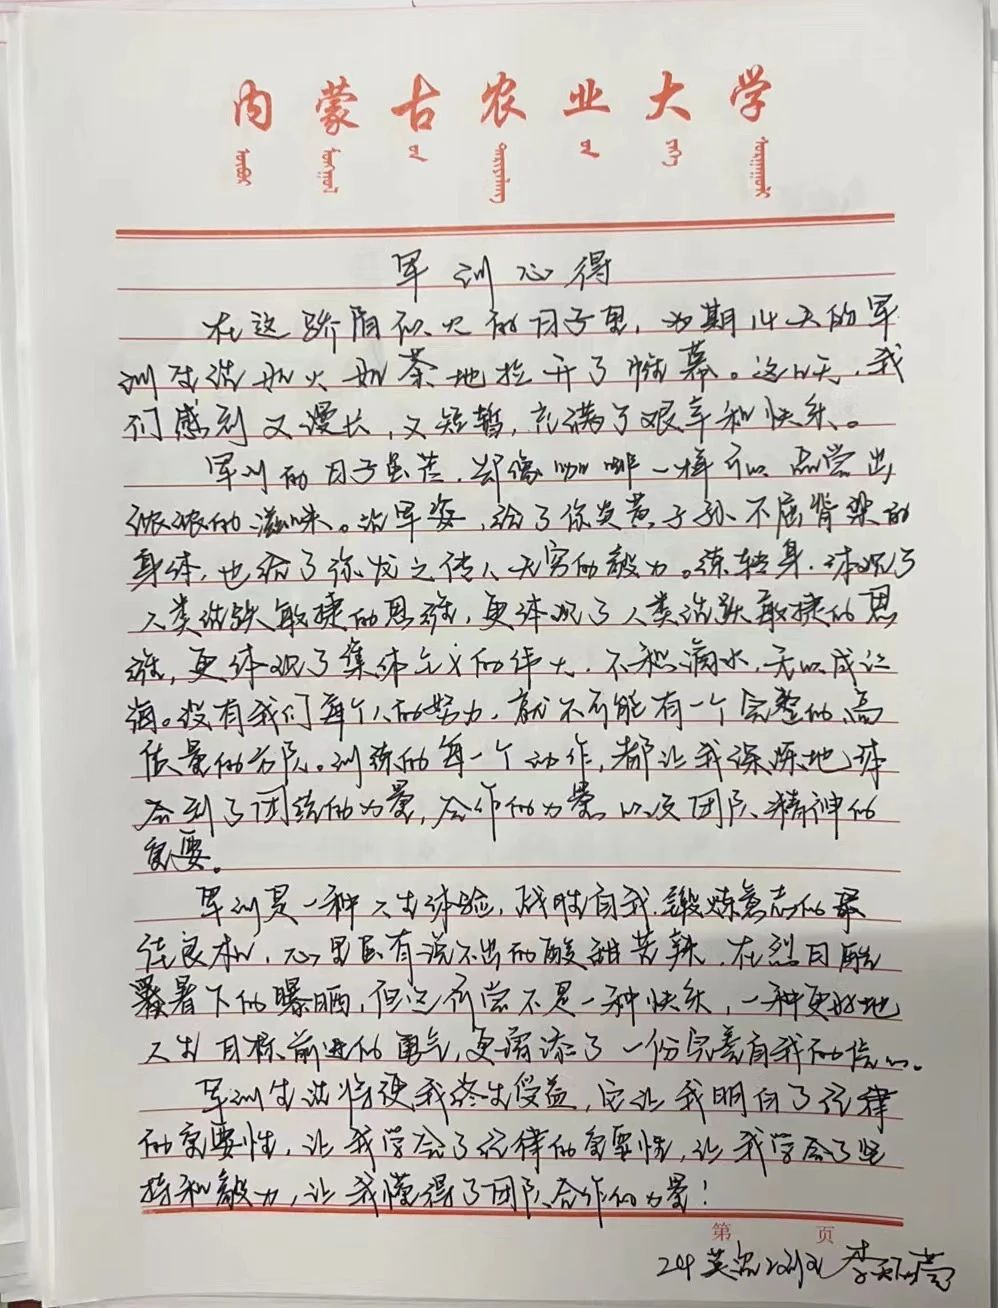 内蒙古农业大学
军训心得
在这骄阳似火的日子里，为期14天的军
训生活如火如荼地拉开了帷幕。这14天，我
们感到又漫长，又短暂，充满了艰辛和快乐。
军训的日子虽苦，却像咖啡一样可以品尝出
浓浓的滋味。站军姿，给了你炎黄子孙不屈脊梁的
身体，也给了你龙之传人无穷的毅力。练转身，体现了
人类活跃敏捷的思维，更体现了人类活跃敏捷的思
维，更体现了集体主义的伟大，不积滴水，无以成江
海。没有我们每个人的努力，就不可能有一个完整的高
质量的方队。训练的每一个动作，都让我深深地体
会到了团结的力量，合作的力量以及团队精神的
重要。
军训是一种人生体验，战胜自我，锻炼意志的最
佳良机，心里虽有说不出的酸甜苦辣，在烈日酷
暑下的曝晒，但这何尝不是一种快乐，一种更好地
人生目标前进的勇气，更增添了一份完善自我的信心。
军训生活将使我终生受益，它让我明白了纪律
的重要性，让我学会了纪律的重要性，让我学会了坚
持和毅力，让我懂得了团队合作的力量！
第 页